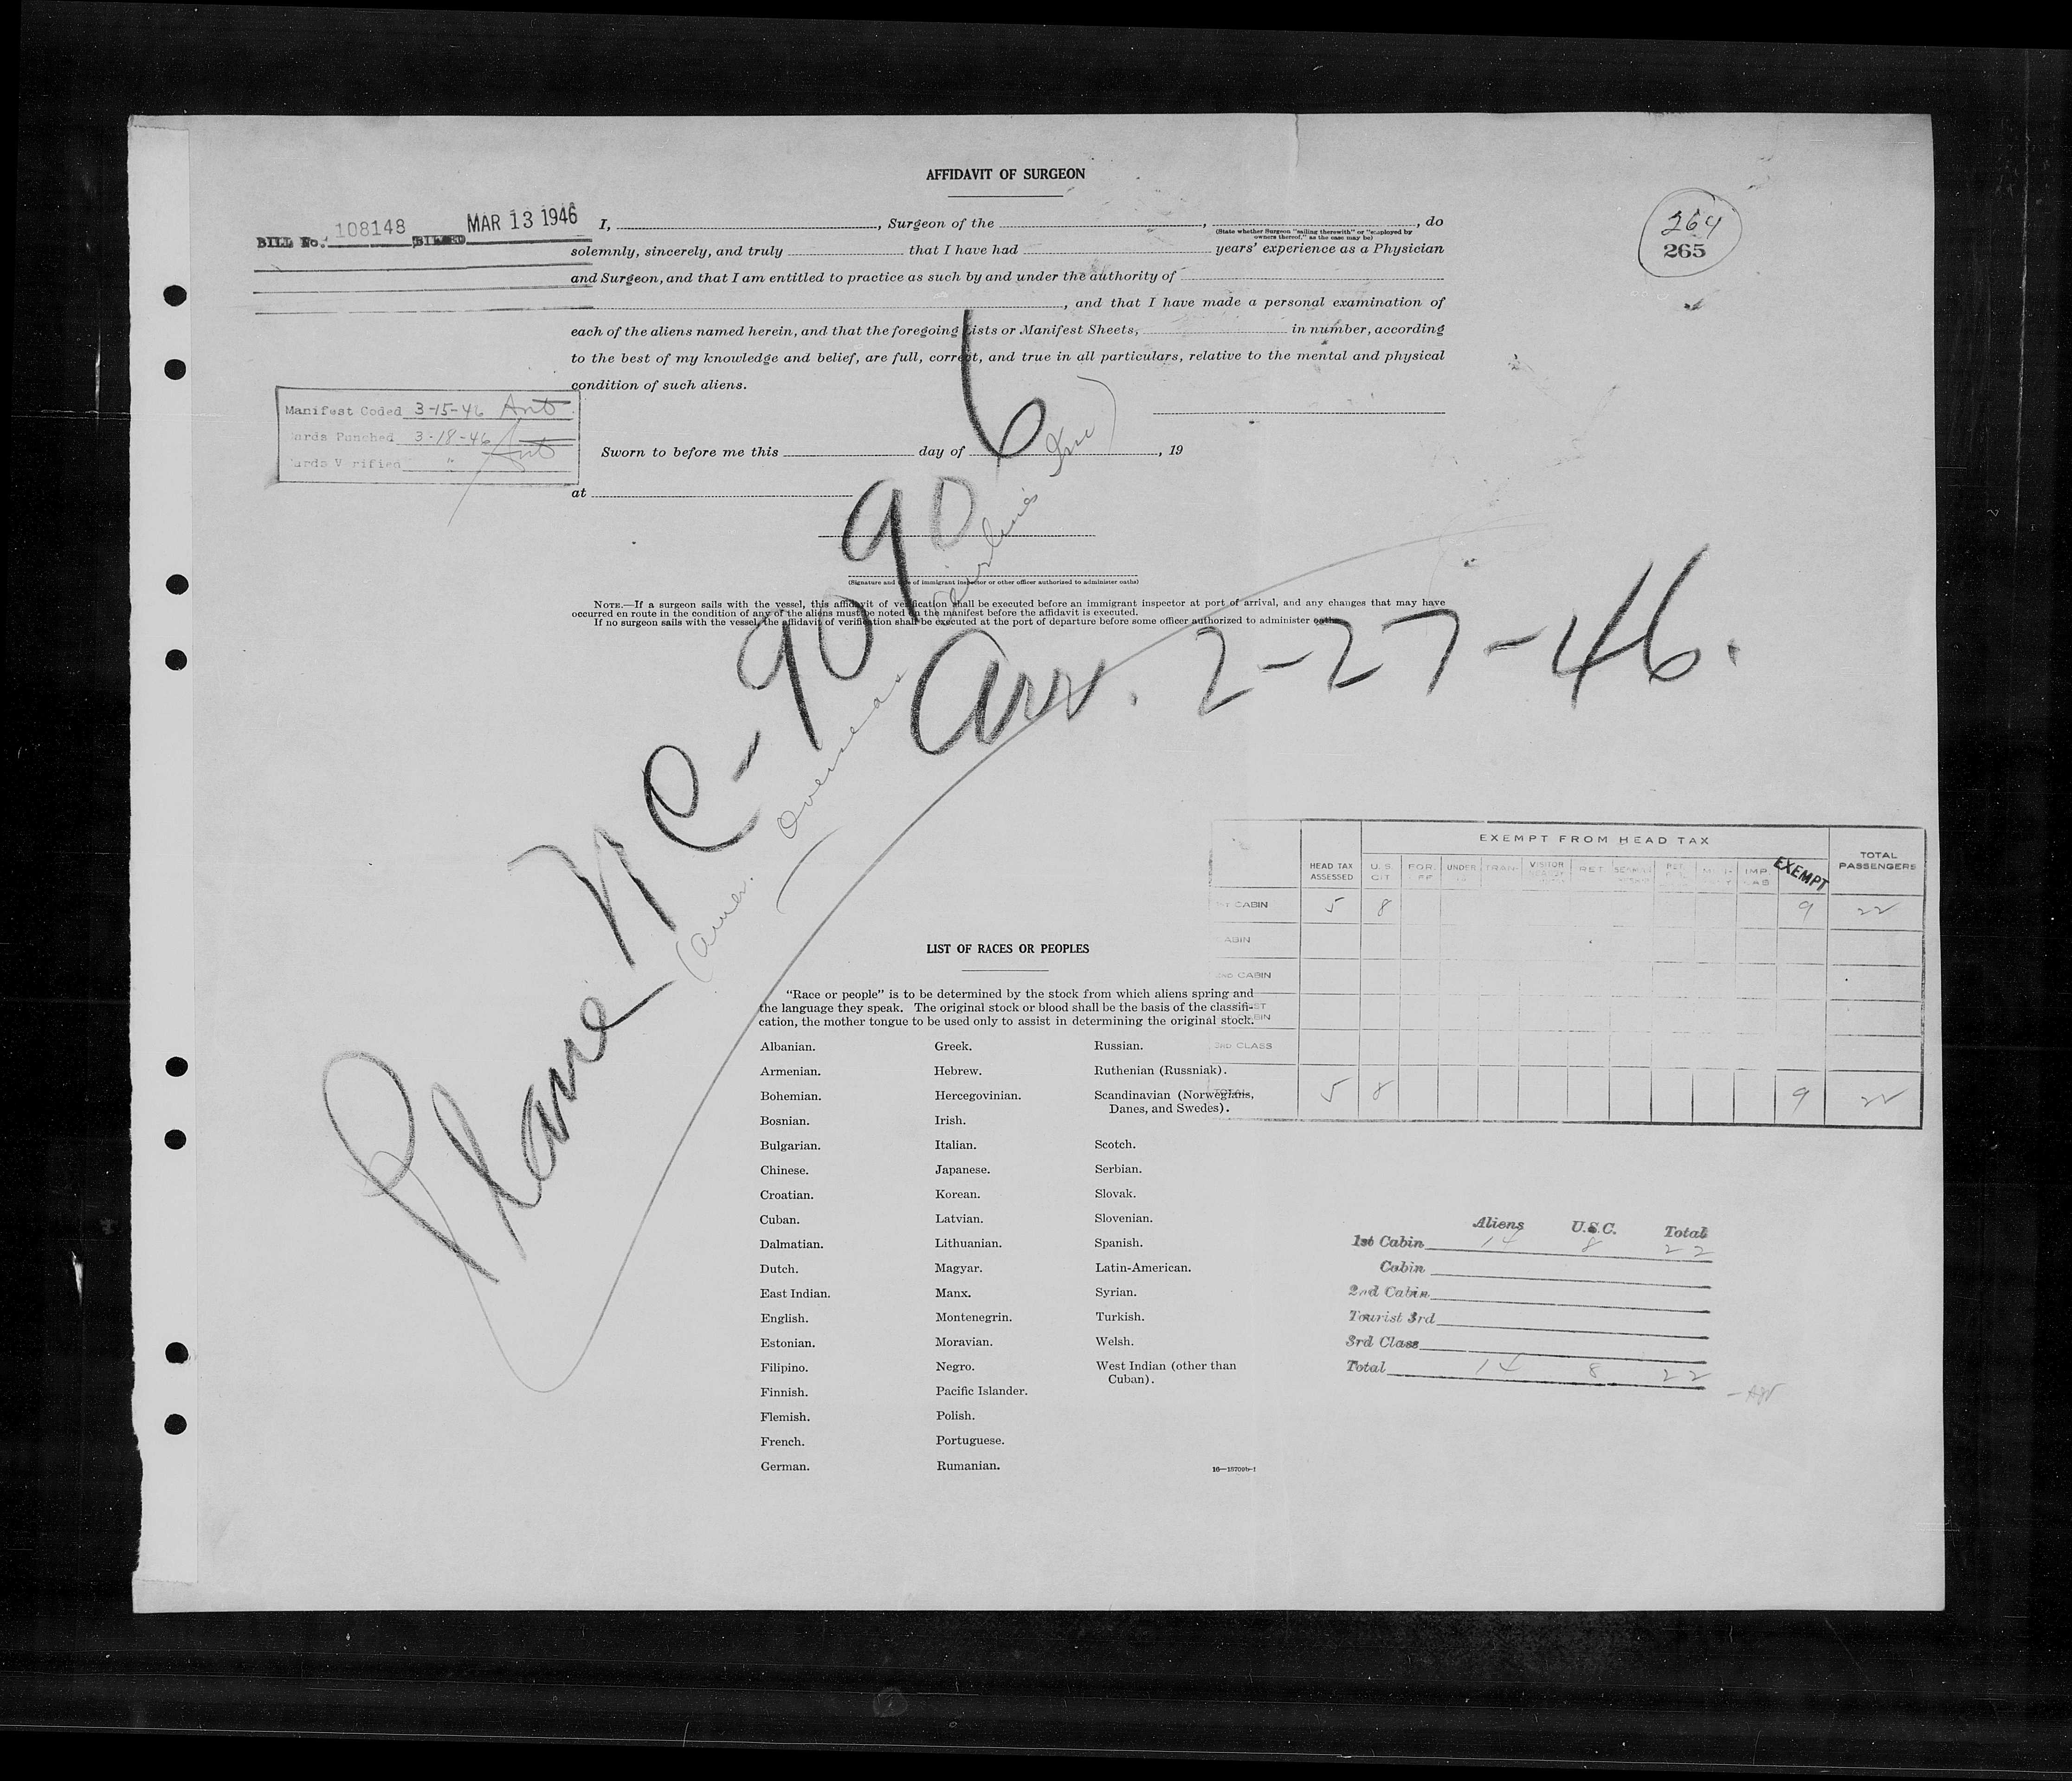 AFFIDAVIT OF SURGEON
264
265
BILL No. 108148 BILLED MAR 13 1946
I, , Surgeon of the , , do
(State whether Surgeon "sailing therewith" or "employed by owners thereof," as the case may be)
solemnly, sincerely, and truly that I have had years' experience as a Physician
and Surgeon, and that I am entitled to practice as such by and under the authority of
, and that I have made a personal examination of
each of the aliens named herein, and that the foregoing Lists or Manifest Sheets, in number, according
to the best of my knowledge and belief, are full, correct, and true in all particulars, relative to the mental and physical
condition of such aliens.
Manifest Coded 3-15-46
Cards Punched 3-18-46
Cards Verified "
Sworn to before me this day of , 19
at
(Signature and title of immigrant inspector or other officer authorized to administer oaths)
NOTE.—If a surgeon sails with the vessel, this affidavit of verification shall be executed before an immigrant inspector at port of arrival, and any changes that may have
occurred en route in the condition of any of the aliens must be noted on the manifest before the affidavit is executed.
If no surgeon sails with the vessel, the affidavit of verification shall be executed at the port of departure before some officer authorized to administer oaths.
Plane NC-90906
(Amer. Overseas Airlines Inc)
Arr. 2-27-46.
EXEMPT FROM HEAD TAX
HEAD TAX ASSESSED U.S. CIT FOR. UNDER TRAN. VISITOR RET. IMP. EXEMPT TOTAL PASSENGERS
1ST CABIN 5 8 9 22
CABIN
2ND CABIN
3RD CLASS
TOTAL 5 8 9 22
LIST OF RACES OR PEOPLES
"Race or people" is to be determined by the stock from which aliens spring and
the language they speak. The original stock or blood shall be the basis of the classifi-
cation, the mother tongue to be used only to assist in determining the original stock.
Albanian. Greek. Russian.
Armenian. Hebrew. Ruthenian (Russniak).
Bohemian. Hercegovinian. Scandinavian (Norwegians,
Danes, and Swedes).
Bosnian. Irish.
Bulgarian. Italian. Scotch.
Chinese. Japanese. Serbian.
Croatian. Korean. Slovak.
Cuban. Latvian. Slovenian.
Dalmatian. Lithuanian. Spanish.
Dutch. Magyar. Latin-American.
East Indian. Manx. Syrian.
English. Montenegrin. Turkish.
Estonian. Moravian. Welsh.
Filipino. Negro. West Indian (other than
Cuban).
Finnish. Pacific Islander.
Flemish. Polish.
French. Portuguese.
German. Rumanian.
Aliens U.S.C. Total
1st Cabin 14 8 22
Cabin
2nd Cabin
Tourist 3rd
3rd Class
Total 14 8 22